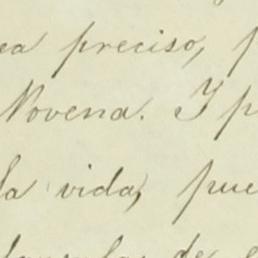 ea preciso, p
Novena. Y p
la vida, pue
de